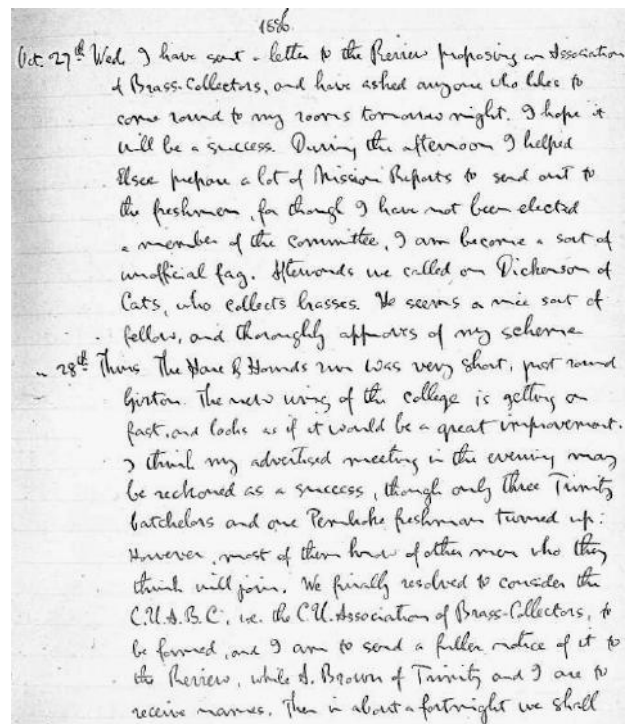 1886.
Oct. 27th Wed. I have sent a letter to the Review proposing an Association
of Brass-Collectors, and have asked anyone who likes to
come round to my rooms tomorrow night. I hope it
will be a success. During the afternoon I helped
Elsee prepare a lot of Mission Reports to send out to
the freshmen, for though I have not been elected
a member of the committee, I am become a sort of
unofficial fag. Afterwards we called on Dickenson of
Cats, who collects brasses. He seems a nice sort of
fellow, and thoroughly approves of my scheme
" 28th Thurs. The Hare & Hounds run was very short, just round
Girton. The new wing of the college is getting on
fast, and looks as if it would be a great improvement.
I think my advertised meeting in the evening may
be reckoned as a success, though only three Trinity
batchelors and one Pembroke freshman turned up:
However, most of them know of other men who they
think will join. We finally resolved to consider the
C.U.A.B.C., i.e. the C.U. Association of Brass-Collectors, to
be formed, and I am to send a fuller notice of it to
the Review, while A. Brown of Trinity and I are to
receive names. Then in about a fortnight we shall